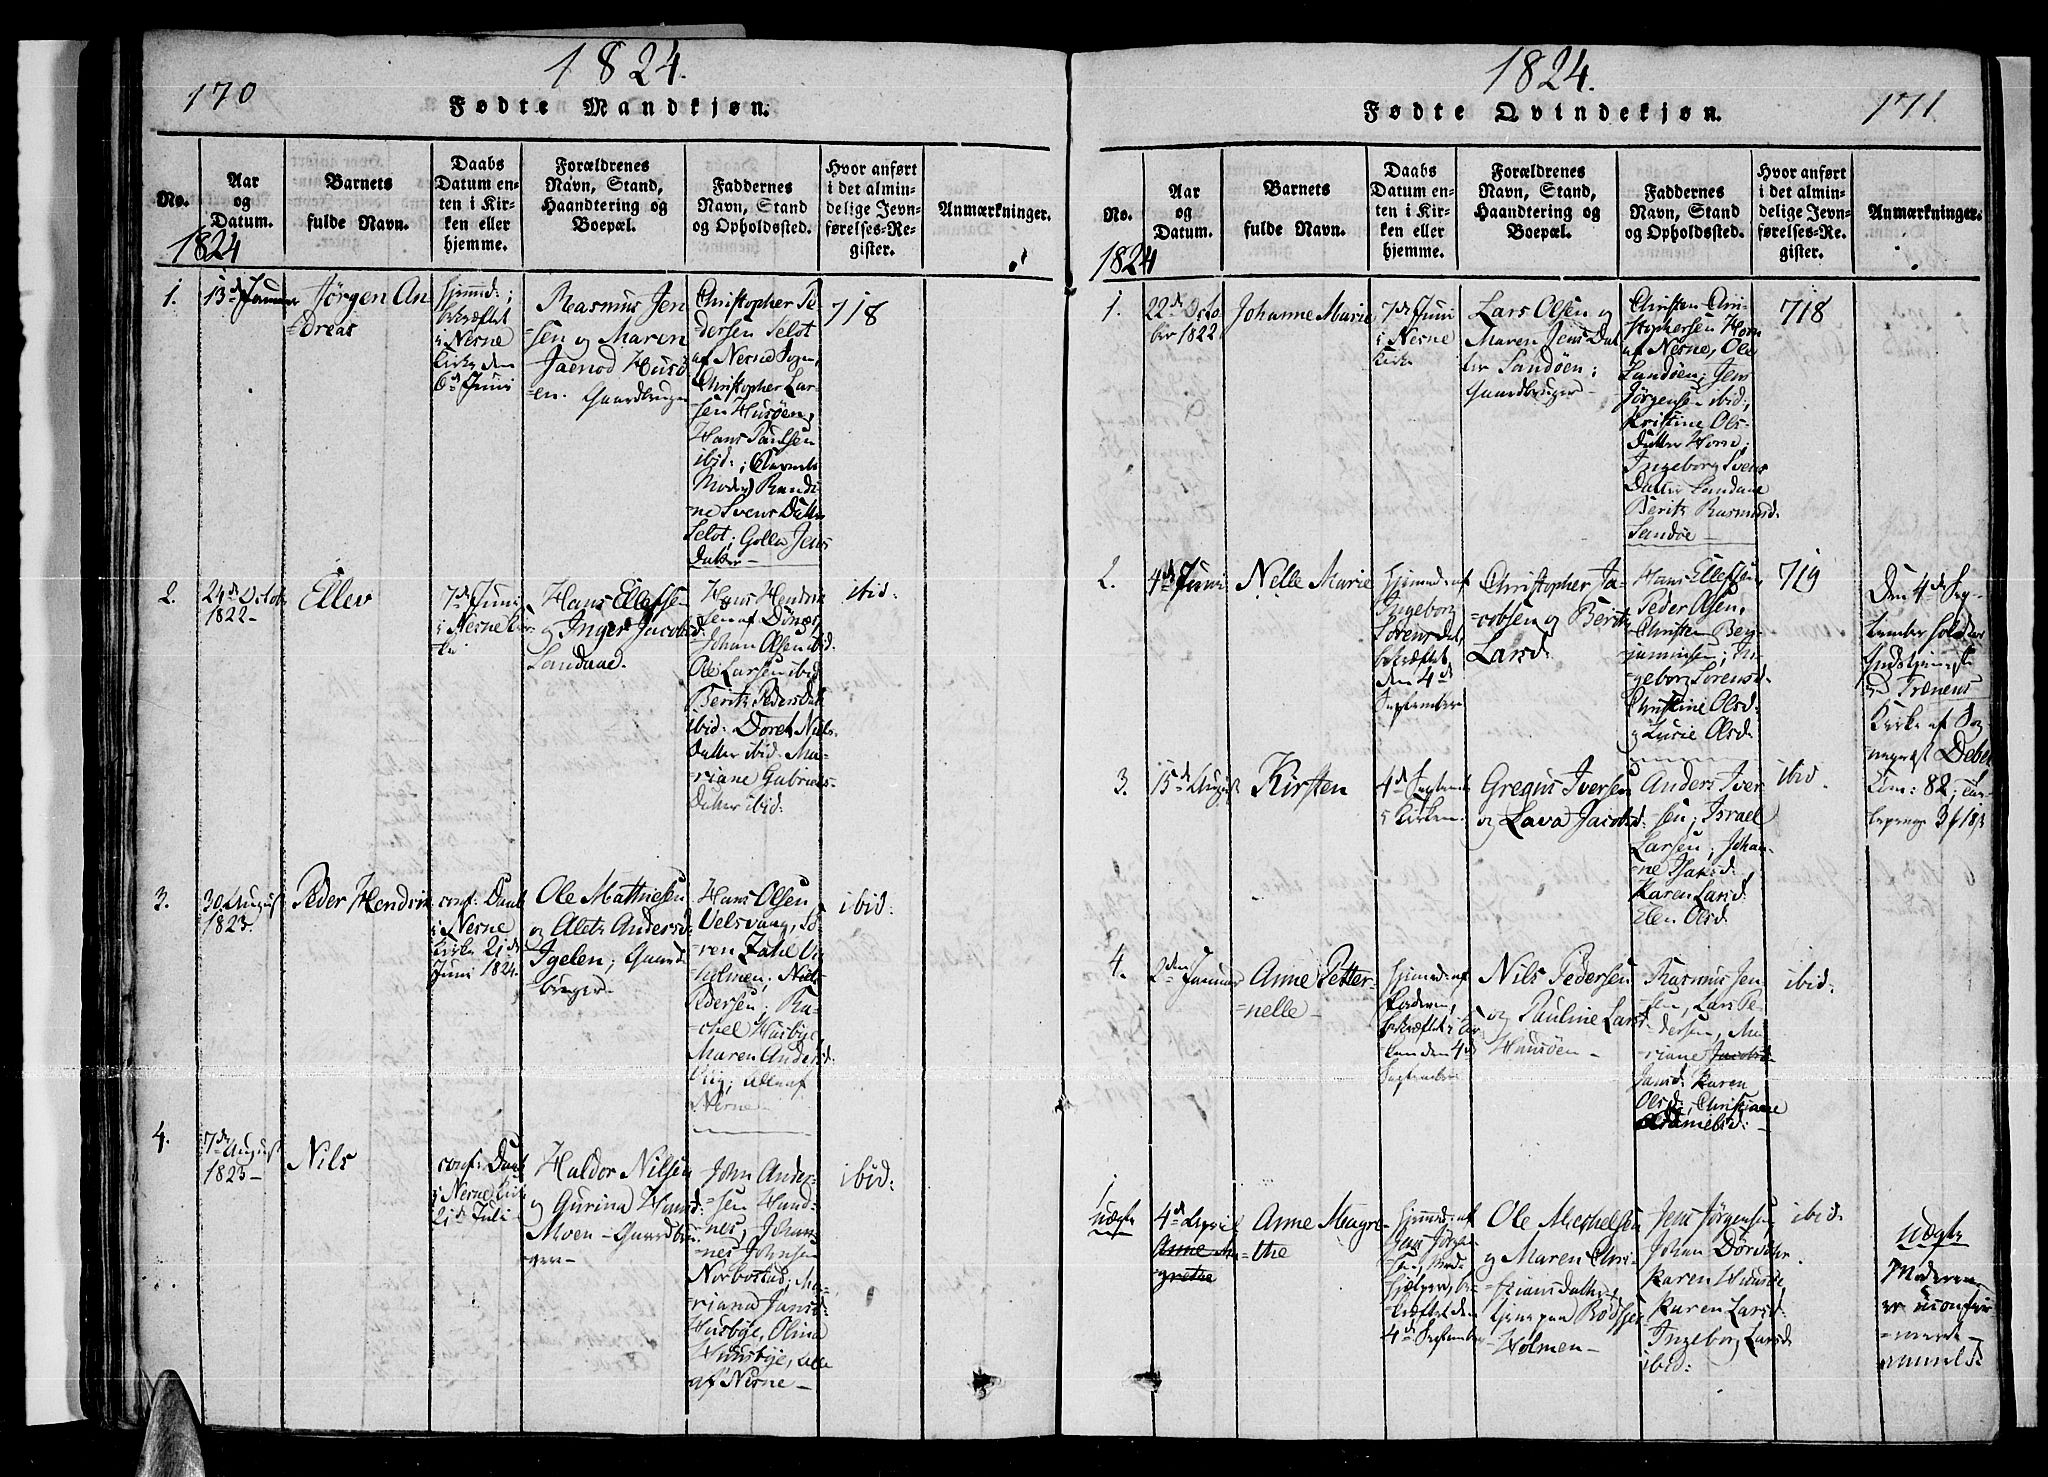 170
1824.
Fødte Mandkjøn.
No.
Aar
og
Datum.
Barnets
fulde Navn.
Daabs
Datum en-
ten i Kir-
ken eller
hjemme.
Forældrenes
Navn, Stand,
Haandtering og
Boepæl.
Faddernes
Navn, Stand
og Opholdssted.
Hvor anført
i det almin-
delige Jevn-
førelses-Re-
gister.
Anmærkninger.
1824
1.
13d Januar
Jörgen An
=dreas
Hjemmed:;
bekræftet
i Nesne
Kirke den
6d Juni
Rasmus Jen
=sen og Maren
Husö
=en. Gaardbruger
Christopher Pe
=dersen Selöt
af Nesne Sogn,
Christopher Lar-
=sen Husöen,
Hans Paulsen
ibid:;
Moder) Randi
=ne Svens Datter
Selöt; Jens
Datter
718
2.
24d Octob.
1822
Ellev
7d Juni
i Nesne Kir-
=ke
Hans Ellefsen
og Inger Jacobsd
Sandaae.
Hans Hendrik
=sen af Dönæs
Johan Olsen ibid
Ole Larsen ibid
Berith Peders Dat
ibid: Doreth Niels
Datter ibid. Ma-
=riane Gabriels
Datter ibid:
ibid:
3.
30 August
1823.
Peder Hendrik
conf: Daab
i Nesne
Kirke 21de
Juni 1824.
Ole Mathiesen
og Aleth Andersd
Igelen; Gaard
bruger
Hans Olsen
Uelsvaag, Sö
=ren Zahl
holmen; Niels
Pedersen; Ra-
=chel Husbye,
Maren Andersd.
alle af
Nesne
ibid:
4.
7de August
1823
Nils
conf: Daab
i Nesne Kirke
21de Juli
Haldor Nilsen
og Gurina Hansd:
Moen - Gaardbru
=ger
John Ander-
=sen Hand-
=nes, Johan-
=nes Johnsen
Norbostad; Ma-
=riana Jansd:
Husbye, Olina
Husbye, alle
af Nesne
ibid:
1824.
171
Fødte Qvindekjøn.
No.
Aar
og
Datum.
Barnets
fulde Navn.
Daabs
Datum en-
ten i Kir-
ken eller
hjemme.
Forældrenes
Navn, Stand,
Haandtering og
Boepæl.
Faddernes
Navn, Stand
og Opholdssted.
Hvor anført
i det almin-
delige Jevn-
førelses-Re-
gister.
Anmærkninger.
1824
1.
22de Octo
ber 1822
Johanne Marie
7de Juni
i Nesne
Kirke
Lars Olsen og
Maren Jens Dat
ter Sandöen;
Gaardbruger
Christen Chri-
stophersen Horn
af Nesne, Ole
Sandöen; Jens
Jörgensen ibid:,
Kristine Ols-
Datter Horn;
Ingeborg Svens
Datter Sandaae
Berith Rasmusd.
Sandöe
718
2.
4de Juni
Nelle Marie
Hjemmed: af
Ingeborg
Sörens Dat,
bekræftet
den 4de
September
Christopher Ja-
=cobsen og Berith
Larsd:
Hans Ellefsen,
Peder Olsen,
Christen Ben-
jaminsen; In-
geborg Sorensd.
Christine Olsd:
og Lusie Olsd:
719
Den 4de Sep-
tember holdtes
ed Trænens
Kirke af Sog-
nepræst Debes
Com: 82;
3.
15de August
Kirsten
4de Septemb
i Kirken
Gregus Iversen
og Lava Jacobsd:
Anders Iver
=sen; Israel
Larsen; Johan-
=ne Isaksd:
Karen Larsd:
Elen Olsd:
ibid.
4.
2den Januar
Anne Petter-
=nelle
Hjemmed: af
Faderen,
bekræftet i Kir
ken den 4de
September
Nils Pedersen
og Pauline Larsd
Huusöen
Rasmus Jen-
=sen, Lars Pe
=dersen, Ma-
=riane Jacobsd
Jansd: Karen
Olsd:, Christiane
Danielsd:
ibid:
1
uægte
4de April
Anne Ma-
grethe
Anne Magre-
=the
Hjemmed: af
Jens Jörgen
sen, Med-
hjelper, be-
kræftet den
4de September
Ole Mechelsen
og Maren Chri-
=stiansdatter,
tjene paa Rödsye
Holmen
Jens Jörgensen,
Johan Dörvik
Karen Huusöe
Karen Larsd
Ingeborg Larsd:
ibid:
ibid:
uægte
Moderen
er uconfir
=meret